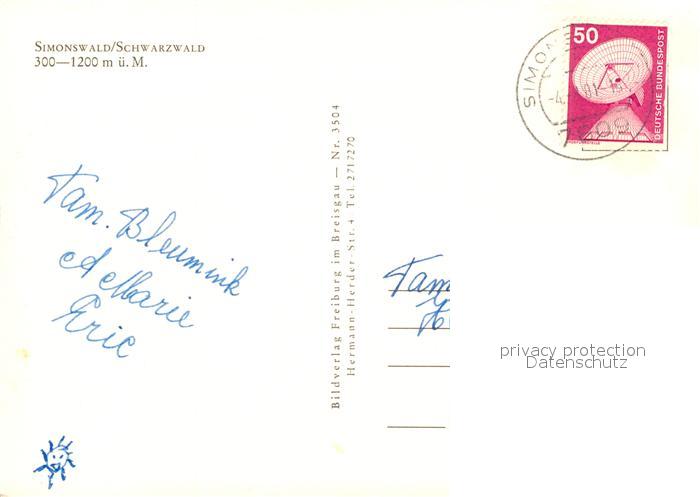 SIMONSWALD/SCHWARZWALD
300—1200 m ü. M.
50
DEUTSCHE BUNDESPOST
SIMON
Fam. Bleumink
Marie
Eric
Bildverlag Freiburg im Breisgau — Nr. 3504
Hermann-Herder-Str. 4 Tel. 2717270
Fam
privacy protection
Datenschutz